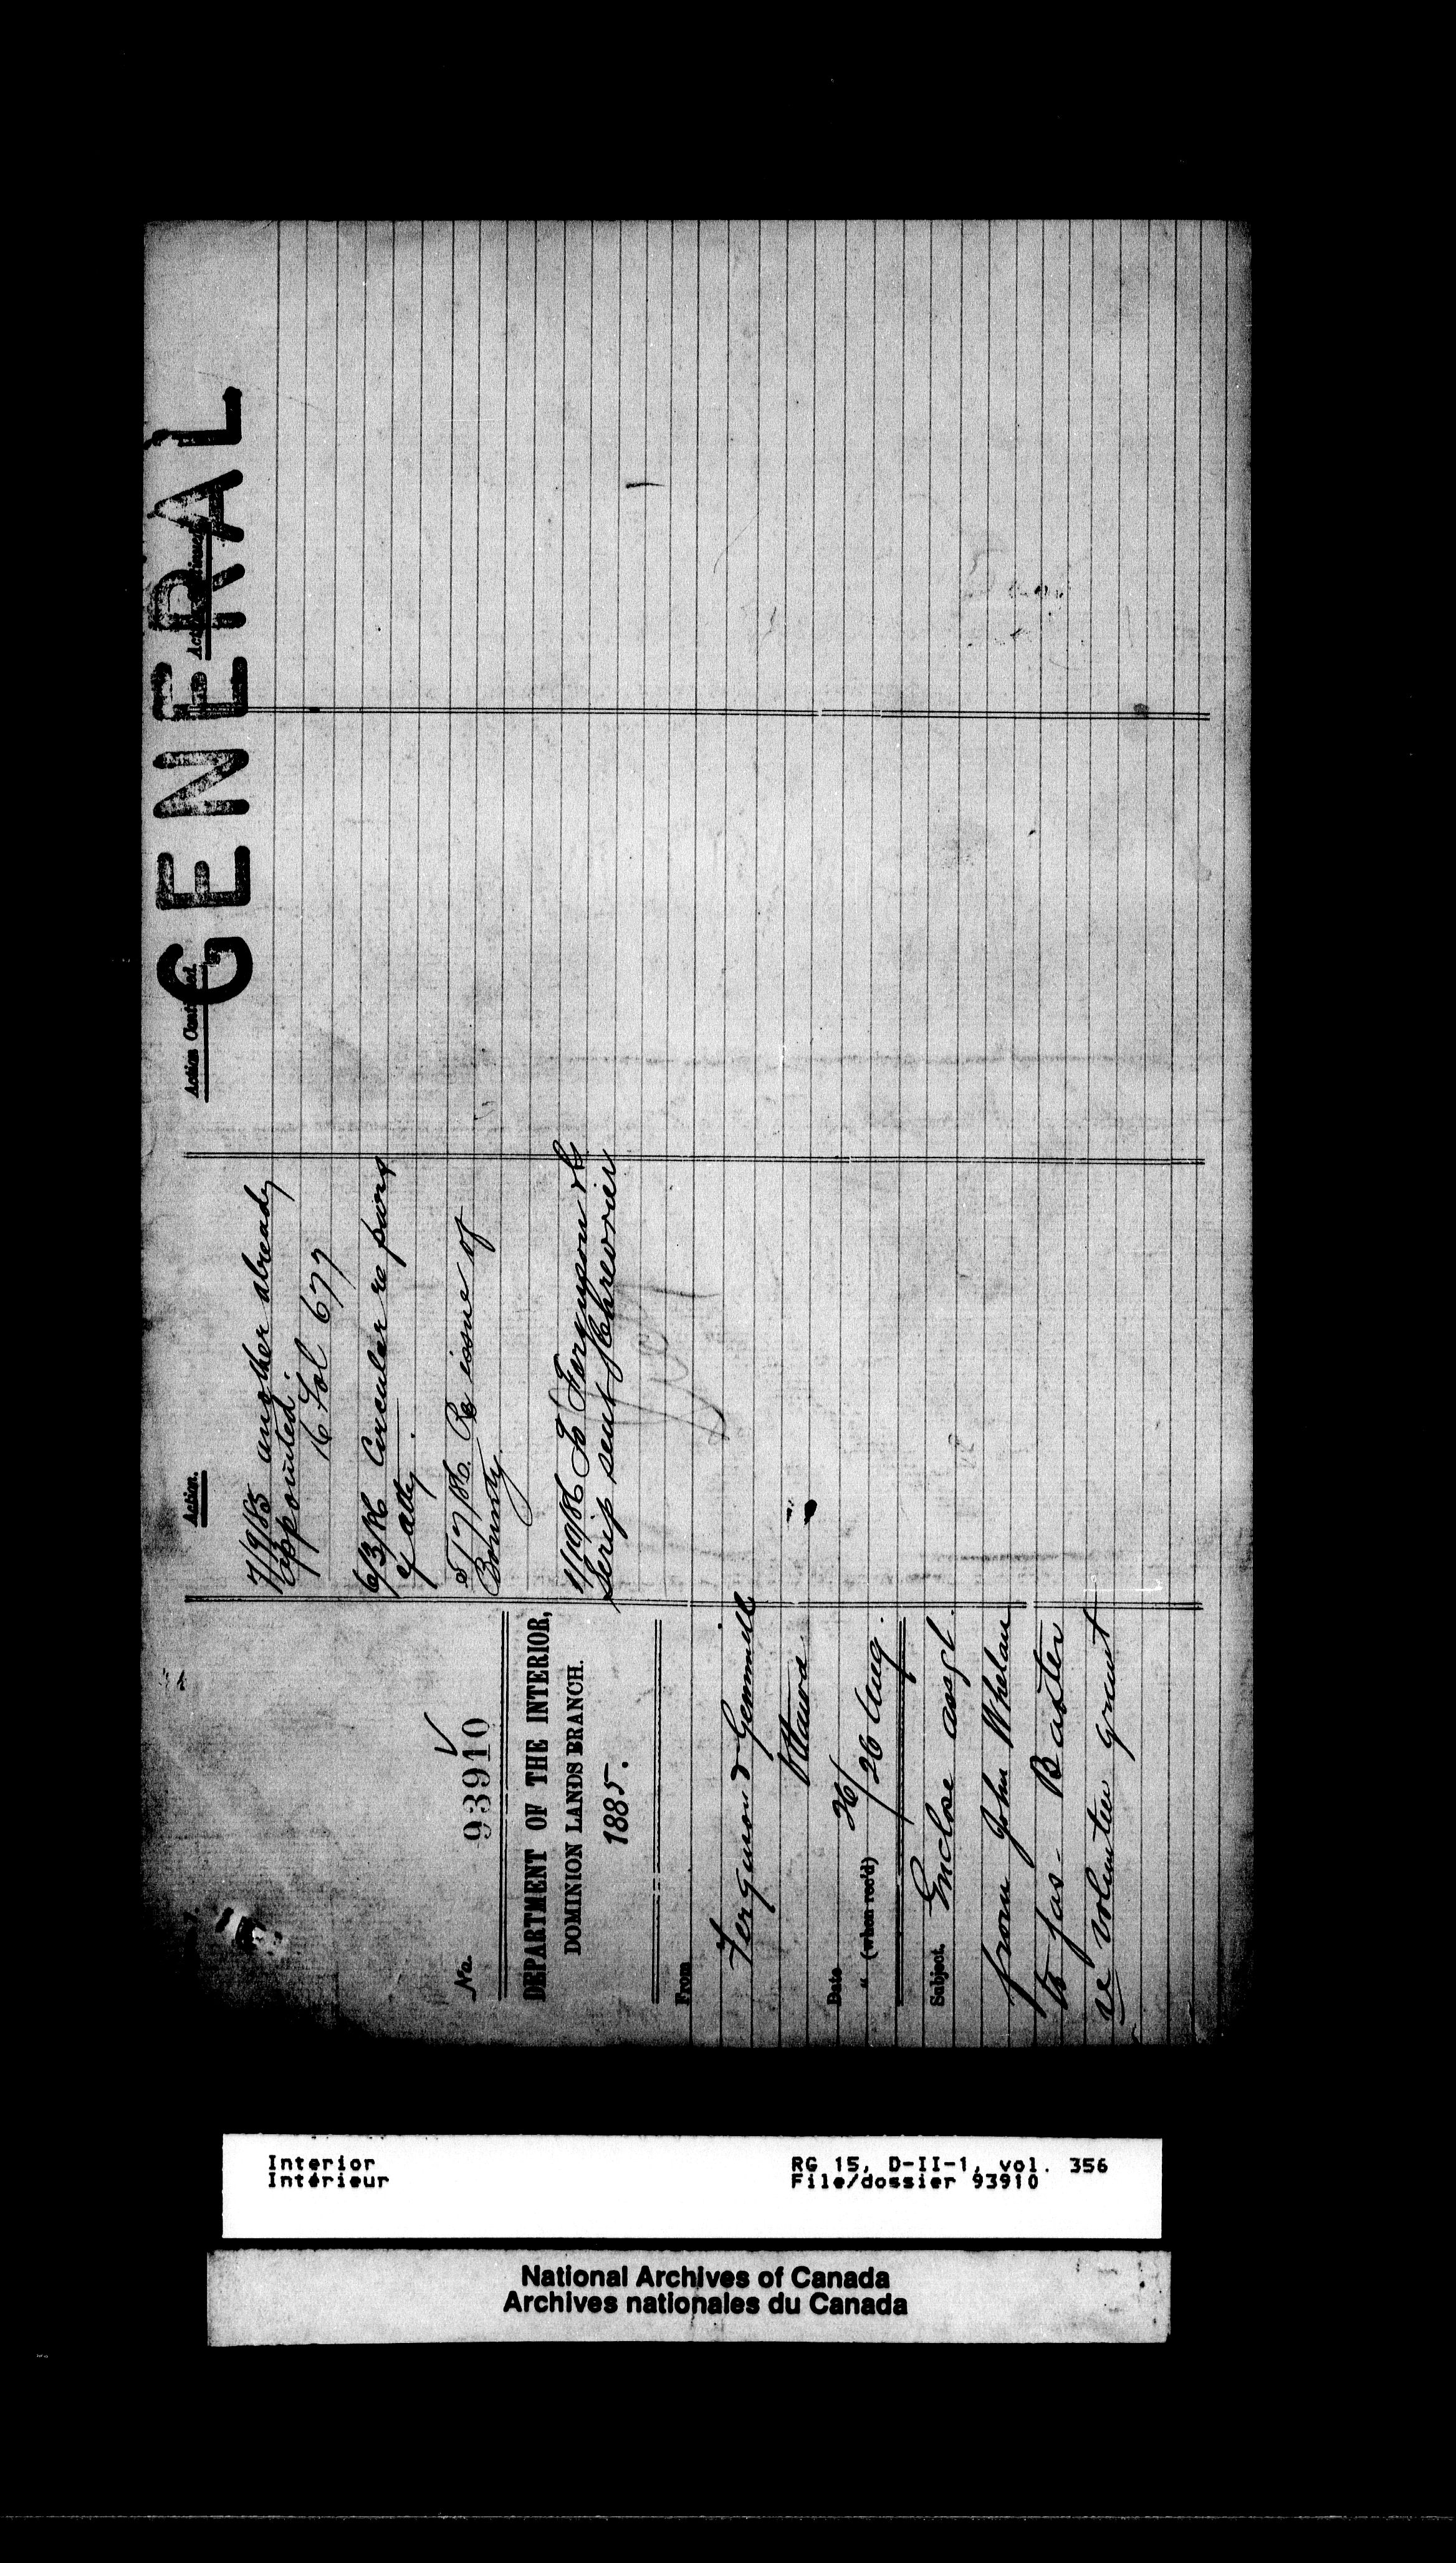 GENERAL
No. 93910
DEPARTMENT OF THE INTERIOR,
DOMINION LANDS BRANCH.
1885.
From
Ferguson & Gemmill
Ottawa
Date 26/
" (when rec'd) 26 Aug.
Subject. Enclose assgt.
from John Whelan
to Jas- Baxter
re volunteer grant
Action.
7/9/85 another already
appointed.
Fol 677
6/3/86 Circular re pwrs
of atty.
Re issue of
Bounty.
1/10/86 To Ferguson &
Scrip sent
Action Continued.
Action Continued.
Interior
Intérieur
RG 15, D-II-1, vol. 356
File/dossier 93910
National Archives of Canada
Archives nationales du Canada